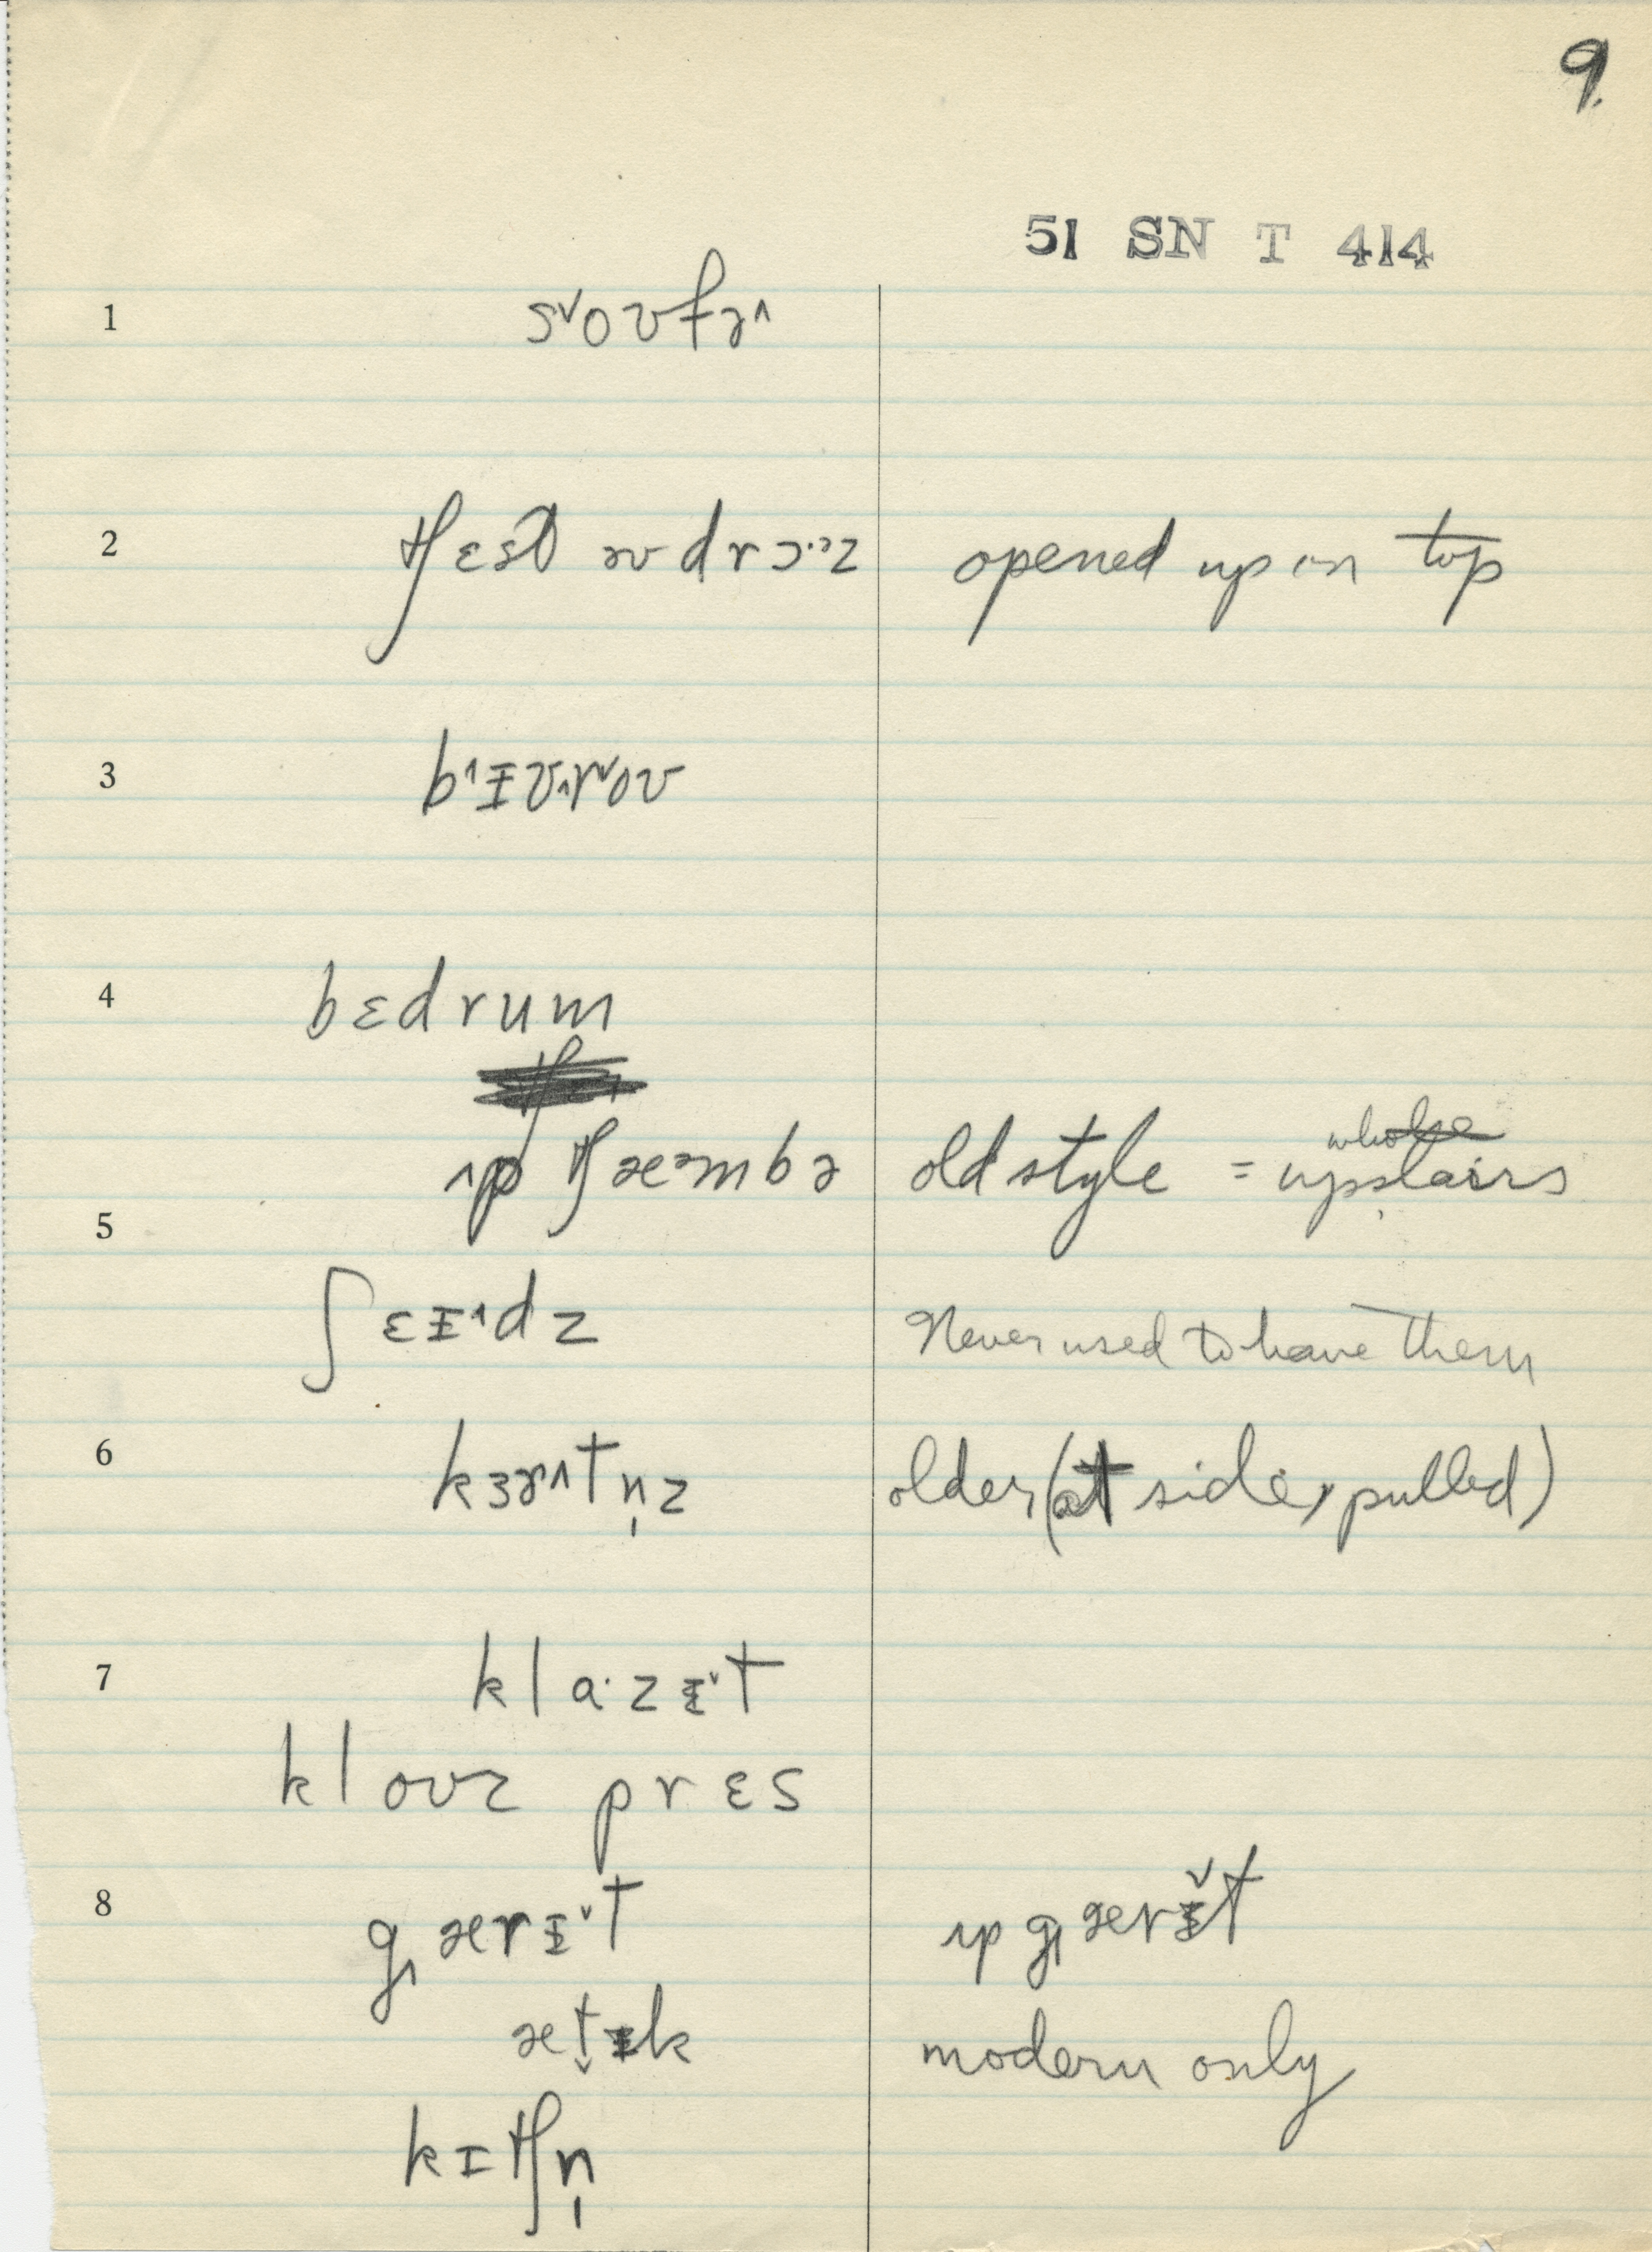 9.
51 SN T 414
1 s˅oʊfə˄
2 tʃɛst əv drɔ·ɚz opened up on top
3 b˄ɪʊ˄r˅oʊ
4 bɛdrum
ʌp tʃæᵊmbə old style = upstairs
5
ʃɛɪ˄dz Never used to have them
6 kɜɚ˄tn̩z older (at side, pulled)
7 klɑ·zɪ˅t
kloʊz prɛs
8 g˄ærɪ˅t ʌp g˄ærɪ˅t
æt̬ɪk modern only
kɪtʃn̩